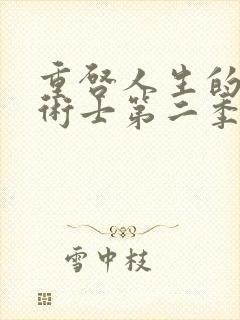 重啓人生的
術士第二季
雪中枝